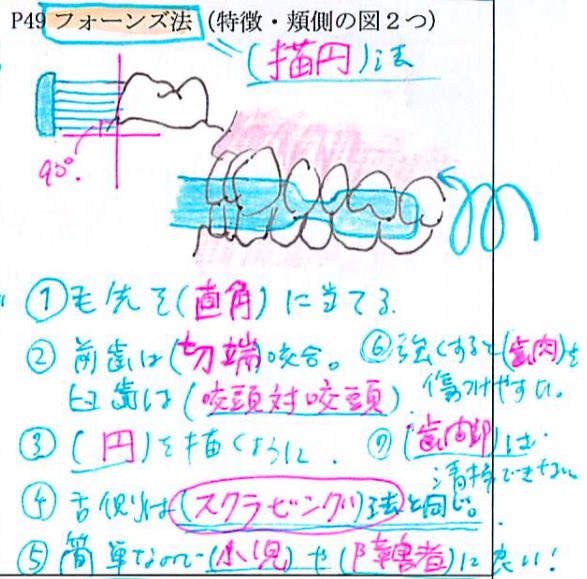 P49 フォーンズ法（特徴・頬側の図２つ）
(描円)法
90°.
①毛先を(直角)に当てる.
②前歯は(切端)咬合。
臼歯は(咬頭対咬頭).
③(円)を描くように.
④舌側は(スクラビング)法と同じ。
⑤簡単なので(小児)や(障害者)に良い!
⑥強くすると(歯肉)を
傷つけやすい。
⑦(歯間部)は
清掃できない